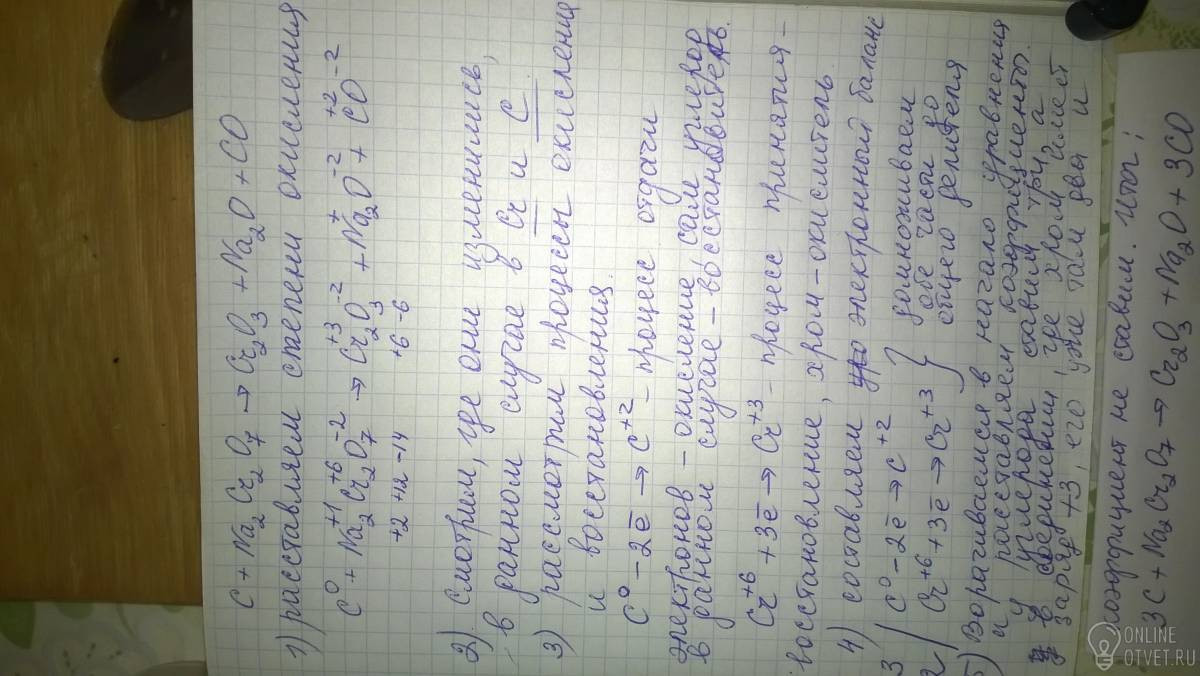 C + Na2Cr2O7 → Cr2O3 + Na2O + CO
1) расставляем степени окисления
C⁰ + Na2⁺¹Cr2⁺⁶O7⁻² → Cr2⁺³O3⁻² + Na2⁺O⁻² + C⁺²O⁻²
+2 +12 -14 +6 -6
2) Смотрим, где они изменились,
в данном случае в Cr и C
3) рассмотрим процессы окисления
и восстановления.
C⁰ - 2ē → C⁺² - процесс отдачи
электронов - окисление, сам углерод
в данном случае - восстановитель.
Cr⁺⁶ + 3ē → Cr⁺³ - процесс принятия -
восстановление, хром - окислитель
4) составляем электронный баланс
3 | C⁰ - 2ē → C⁺² } домножываем
2 | Cr⁺⁶ + 3ē → Cr⁺³ обе части до
общего делителя
5) Ворачиваемся в начало уравнения
и расставляем коэффициенты.
У углерода ставим три, а
в соединении, где хром имеет
заряд +3, его уже там два и
коэффициент не ставим. Итог:
3C + Na2Cr2O7 → Cr2O3 + Na2O + 3CO
ONLINE
OTVET.RU